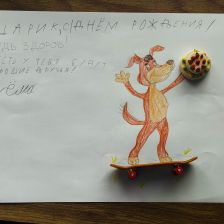 ШАРИК, С ДНЁМ РОЖДЕНИЯ!
ДЬ ЗДОРОВ!
СТЬ У ТЕБЯ БУДУТ
ОШИЕ ДРУЗЬЯ!